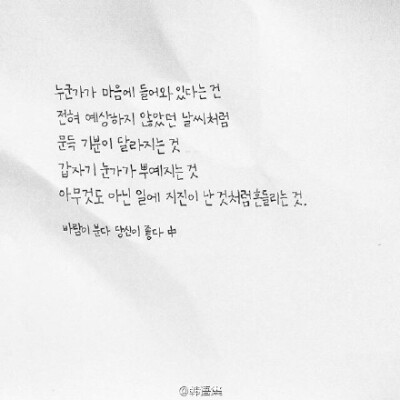 누군가가 마음에 들어와 있다는 건
전혀 예상하지 않았던 날씨처럼
문득 기분이 달라지는 것
갑자기 눈가가 뿌예지는 것
아무것도 아닌 일에 지진이 난 것처럼 흔들리는 것.
바람이 분다 당신이 좋다 中